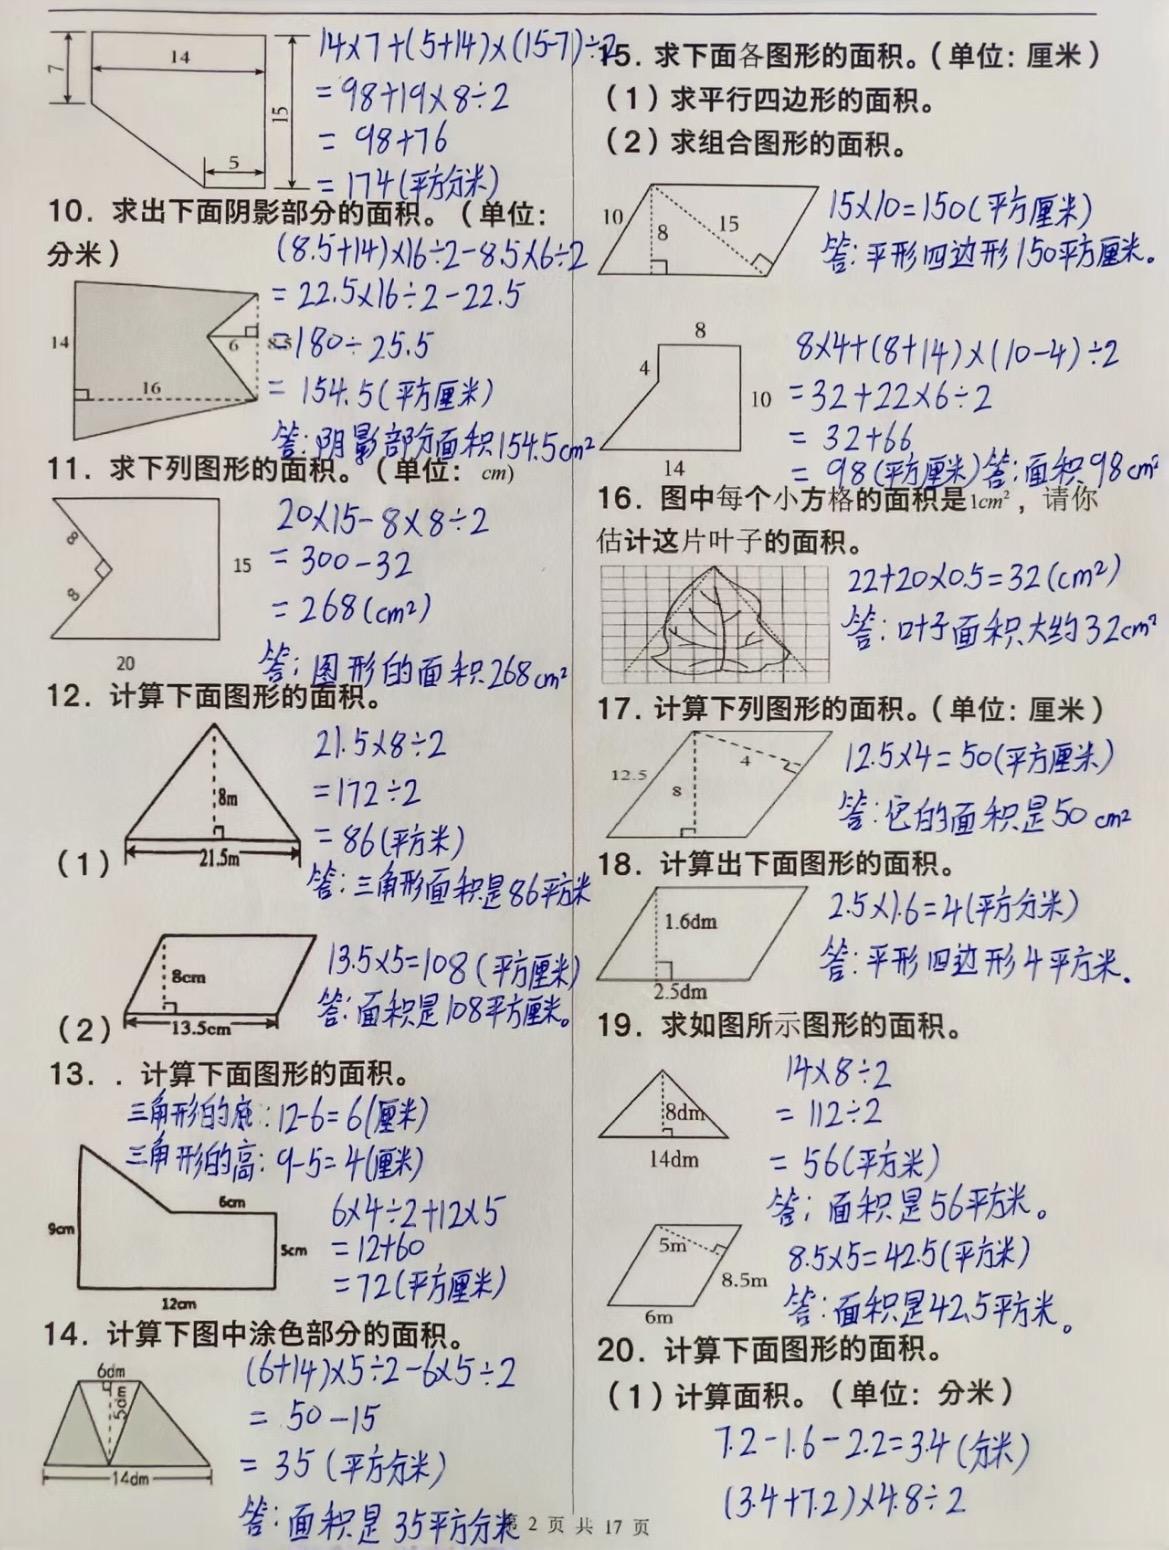 7
14
15
5
14×7+(5+14)×(15-7)÷2
=98+19×8÷2
= 98+76
=174(平方分米)
10. 求出下面阴影部分的面积。（单位：
分米）
(8.5+14)×16÷2-8.5×6÷2
=22.5×16÷2-22.5
=180÷25.5
= 154.5(平方厘米)
答:阴影部分面积154.5cm²
14
6
8.5
16
11. 求下列图形的面积。（单位： cm)
8
8
15
20
20×15-8×8÷2
=300-32
=268(cm²)
答:图形的面积268cm²
12. 计算下面图形的面积。
（1）
8m
21.5m
21.5×8÷2
=172÷2
=86(平方米)
答:三角形面积是86平方米
（2）
8cm
13.5cm
13.5×5=108(平方厘米)
答:面积是108平方厘米。
13. . 计算下面图形的面积。
三角形的底:12-6=6(厘米)
三角形的高:9-5=4(厘米)
9cm
6cm
5cm
12cm
6×4÷2+12×5
=12+60
=72(平方厘米)
14. 计算下图中涂色部分的面积。
6dm
5dm
14dm
(6+14)×5÷2-6×5÷2
= 50-15
= 35(平方分米)
答:面积是35平方分米
15. 求下面各图形的面积。（单位：厘米）
（1）求平行四边形的面积。
（2）求组合图形的面积。
10
8
15
15×10=150(平方厘米)
答:平形四边形150平方厘米。
8
4
10
14
8×4+(8+14)×(10-4)÷2
=32+22×6÷2
= 32+66
= 98(平方厘米)答:面积98cm²
16. 图中每个小方格的面积是1cm²，请你
估计这片叶子的面积。
22+20×0.5=32(cm²)
答:叶子面积大约32cm²
17. 计算下列图形的面积。（单位：厘米）
12.5
8
4
12.5×4=50(平方厘米)
答:它的面积是50cm²
18. 计算出下面图形的面积。
1.6dm
2.5dm
2.5×1.6=4(平方分米)
答:平形四边形4平方米.
19. 求如图所示图形的面积。
8dm
14dm
14×8÷2
=112÷2
=56(平方米)
答:面积是56平方米。
5m
8.5m
6m
8.5×5=42.5(平方米)
答:面积是42.5平方米。
20. 计算下面图形的面积。
（1）计算面积。（单位：分米）
7.2-1.6-2.2=3.4(分米)
(3.4+7.2)×4.8÷2
第 2 页 共 17 页